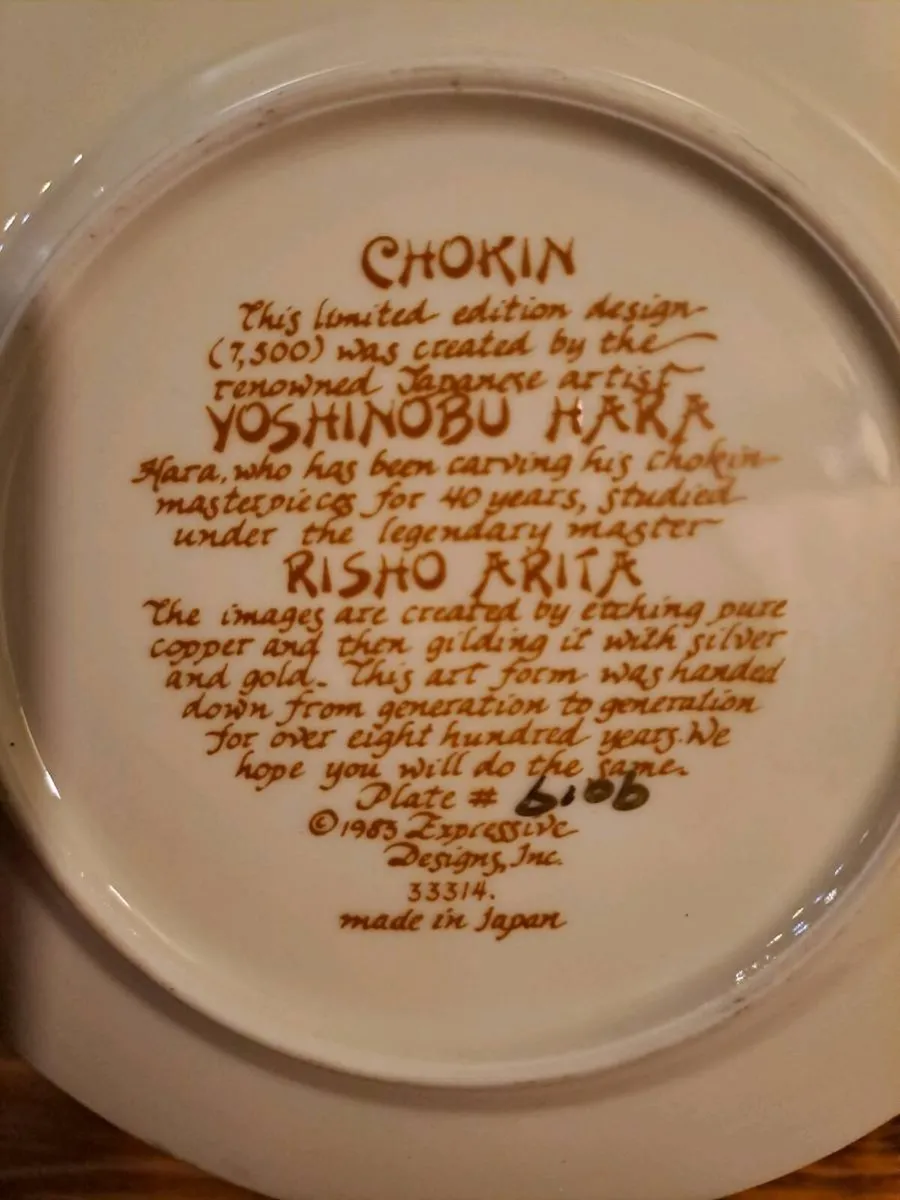 CHOKIN
This limited edition design
(7,500) was created by the
renowned Japanese artist
YOSHINOBU HARA
Hara, who has been carving his chokin
masterpieces for 40 years, studied
under the legendary master
RISHO ARITA
The images are created by etching pure
copper and then gilding it with silver
and gold. This art form was handed
down from generation to generation
for over eight hundred years. We
hope you will do the same.
Plate # 6106
©1983 Expressive
Designs, Inc.
33314.
made in Japan